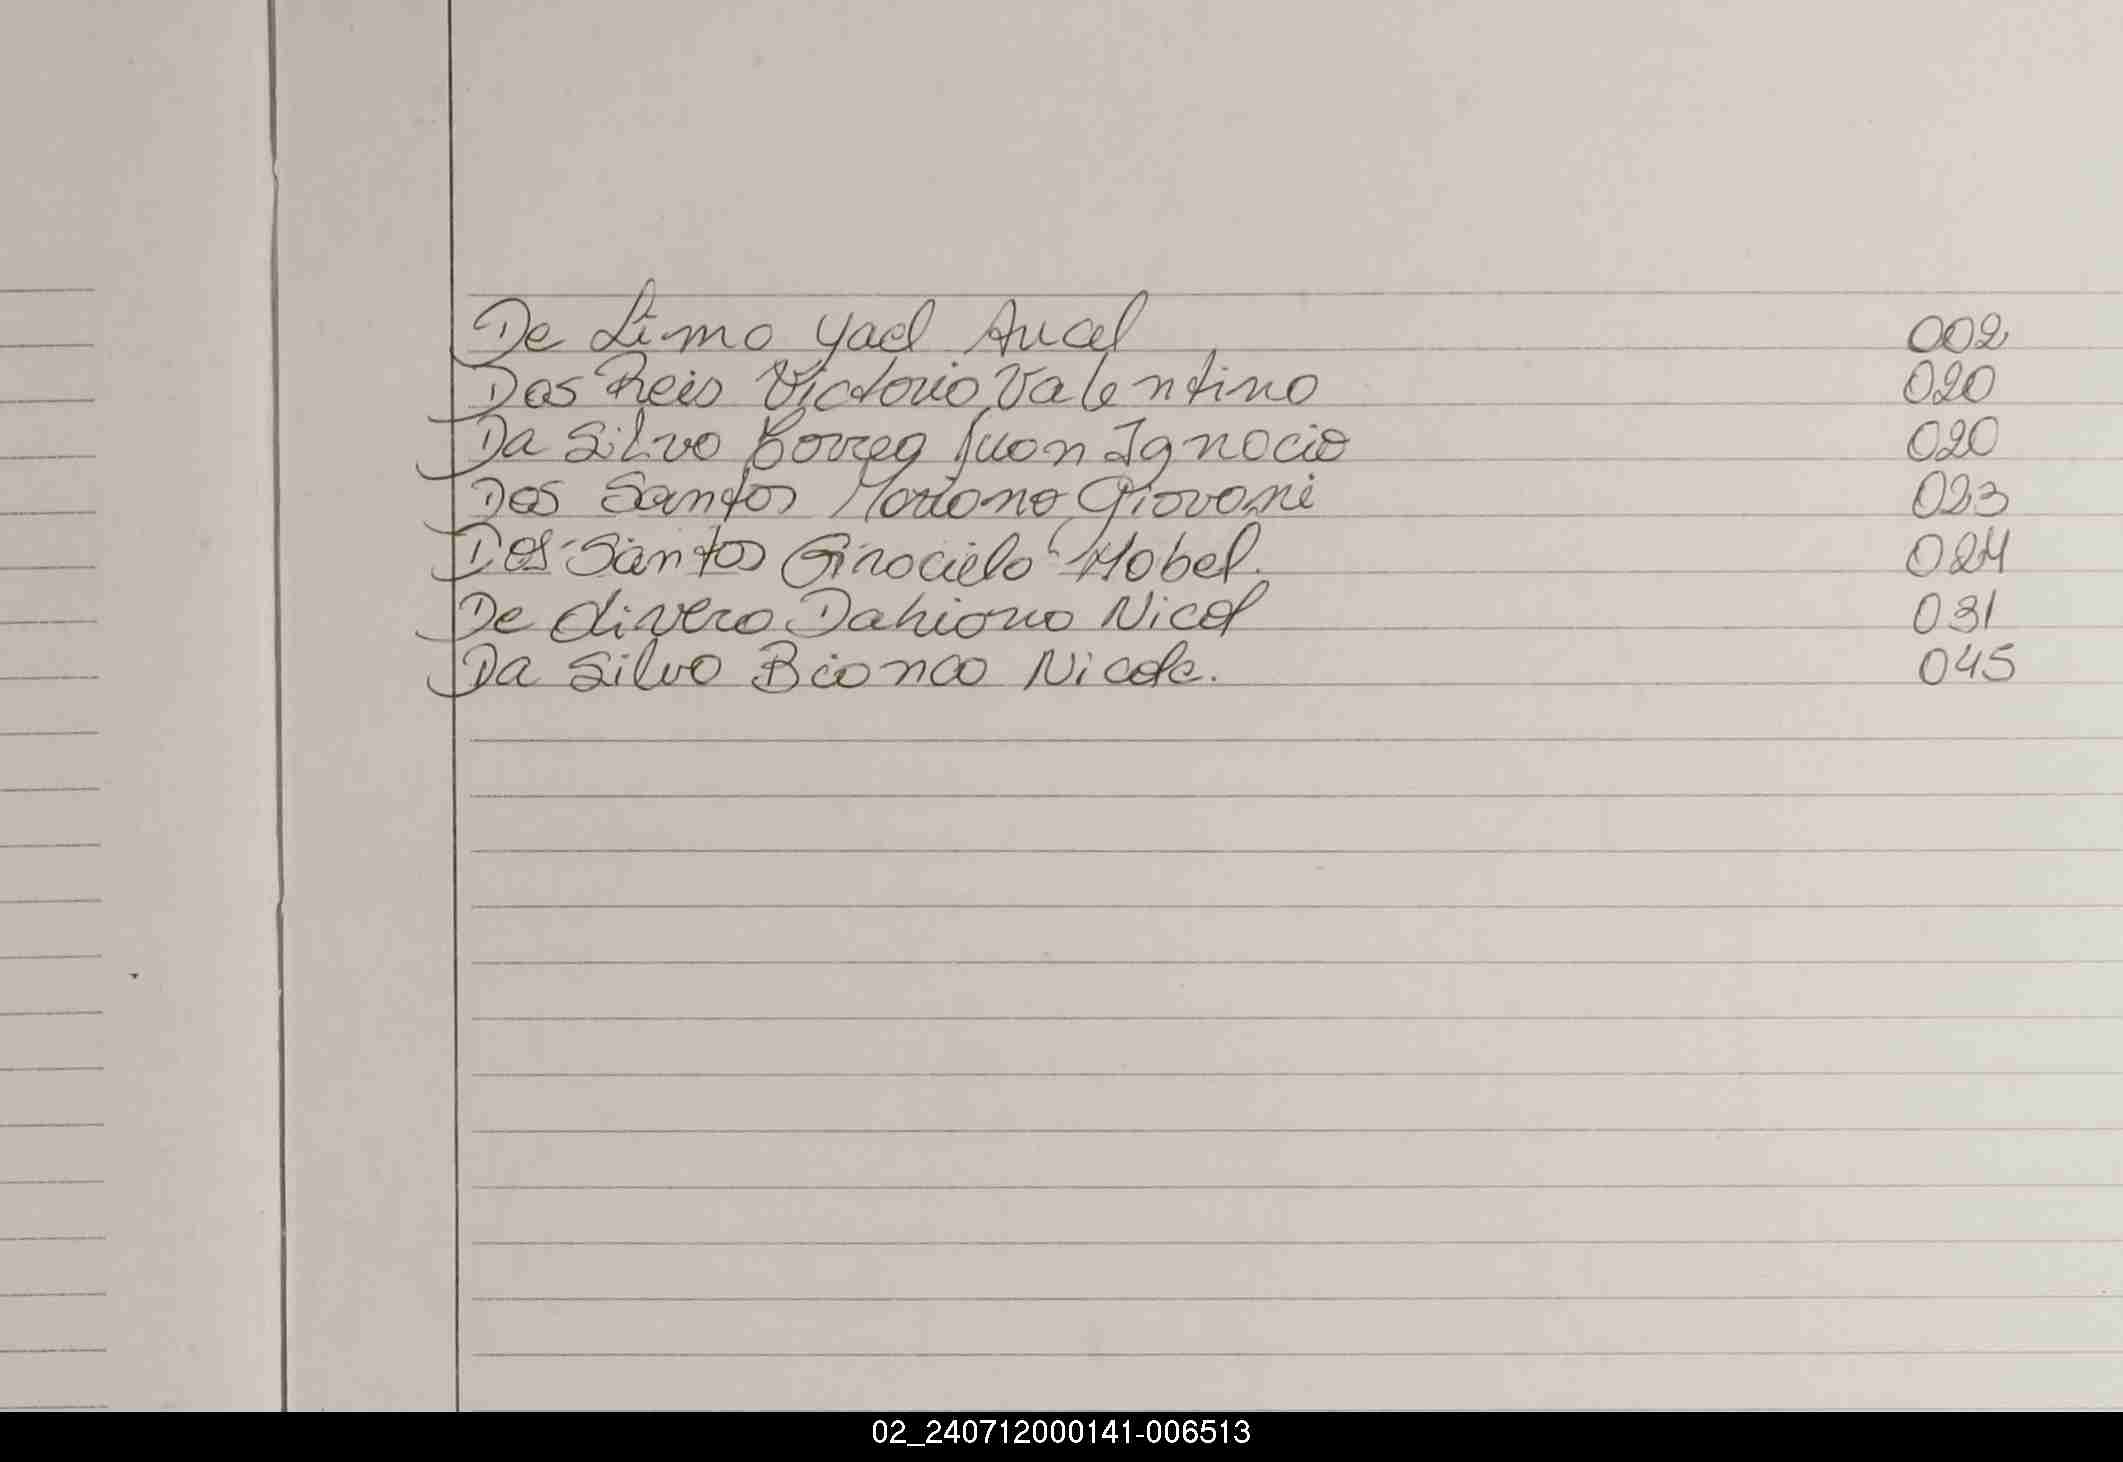 De Lima Yael Aucel 002
Dos Reis Victorio Valentino 020
Da Silva Correa Juan Ignacio 020
Dos Santos Mariano Giovani 023
Dos Santos Graciela Mabel. 024
De Olivera Dahiana Nicol 031
Da Silva Bianca Nicole. 045
02_240712000141-006513